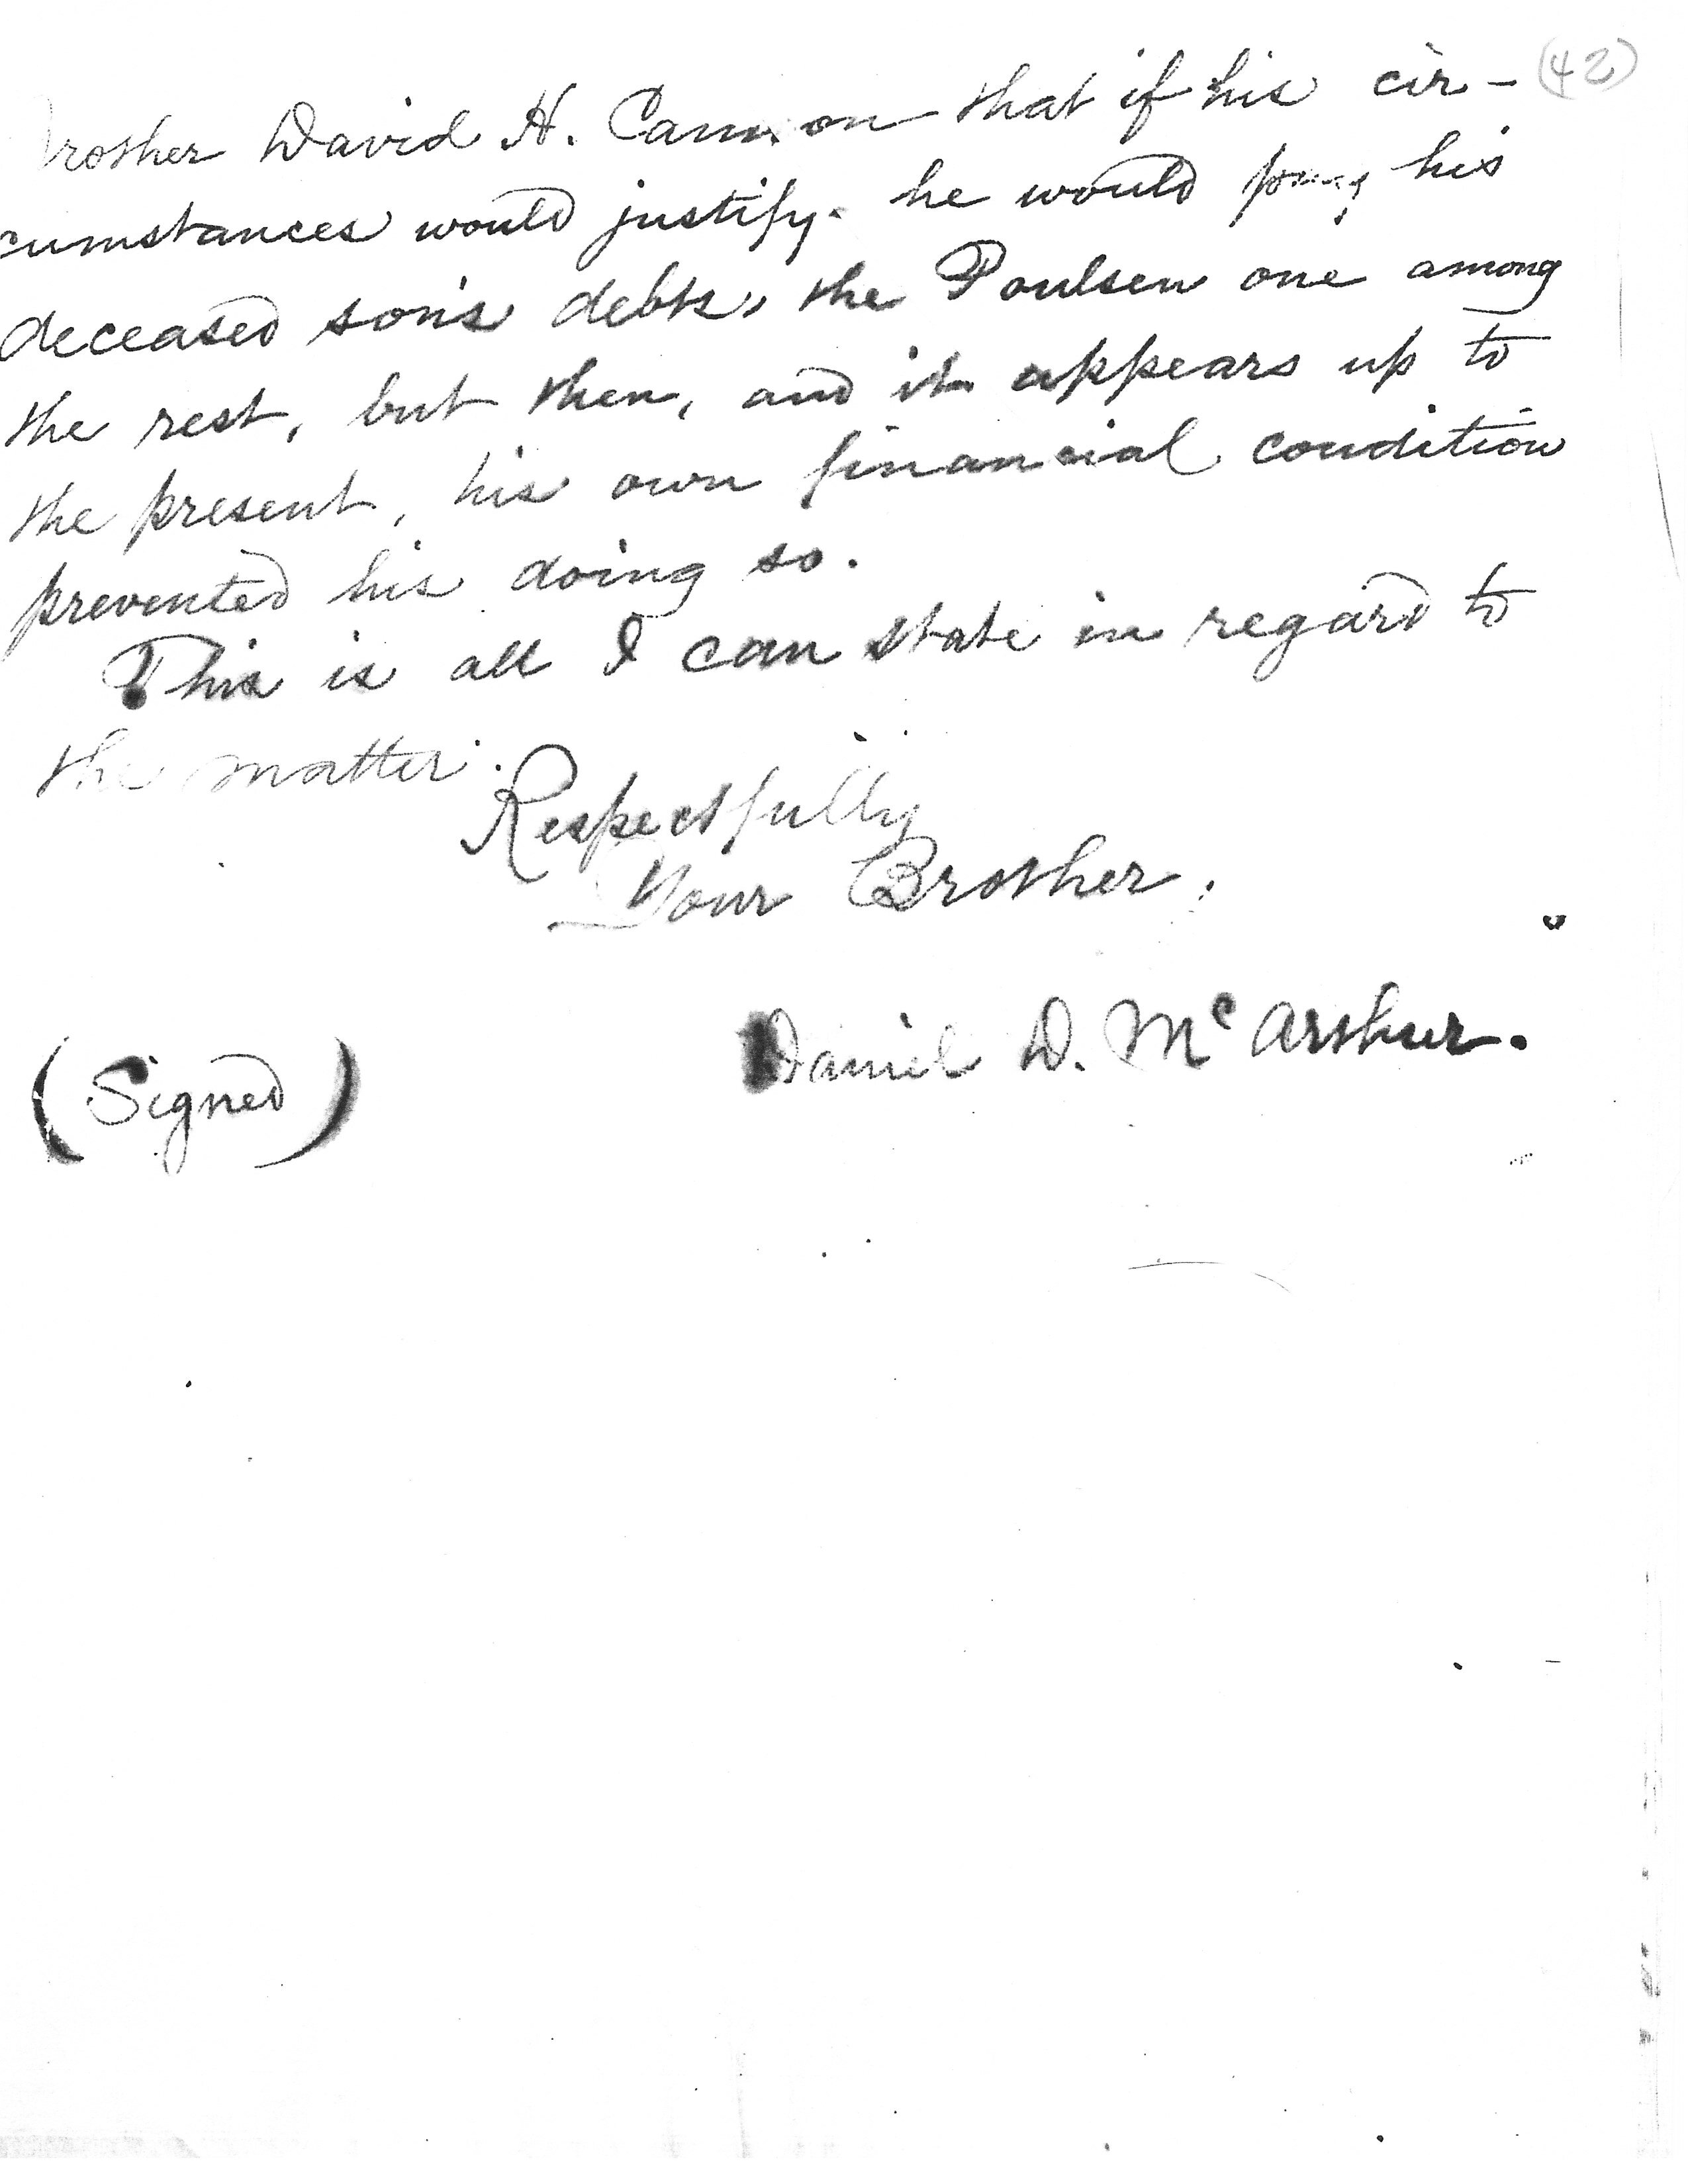 (42)
Brother David H. Cannon that if his cir-
cumstances would justify. he would pay his
deceased son's debts, the Poulsen one among
the rest, but then, and it appears up to
the present, his own financial condition
prevented his doing so.
This is all I can state in regard to
the matter.
Respectfully
Your Brother.
Daniel D. McArthur.
(Signed)